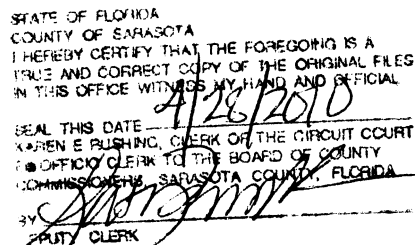 STATE OF FLORIDA
COUNTY OF SARASOTA
I HEREBY CERTIFY THAT THE FOREGOING IS A
TRUE AND CORRECT COPY OF THE ORIGINAL FILES
IN THIS OFFICE WITNESS MY HAND AND OFFICIAL
4/28/2010
SEAL THIS DATE
KAREN E RUSHING, CLERK OF THE CIRCUIT COURT
OFFICIO CLERK TO THE BOARD OF COUNTY
COMMISSIONERS, SARASOTA COUNTY, FLORIDA
BY
DEPUTY CLERK